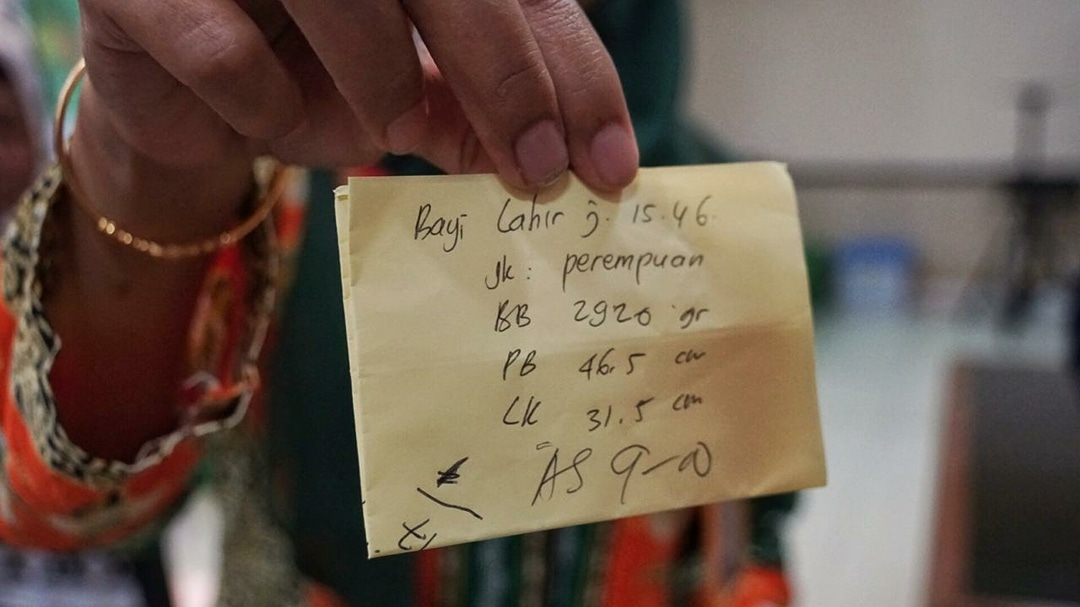 Bayi Lahir j. 15.46
Jk : perempuan
BB 2920 gr
PB 46.5 cm
LK 31.5 cm
AS 9-10